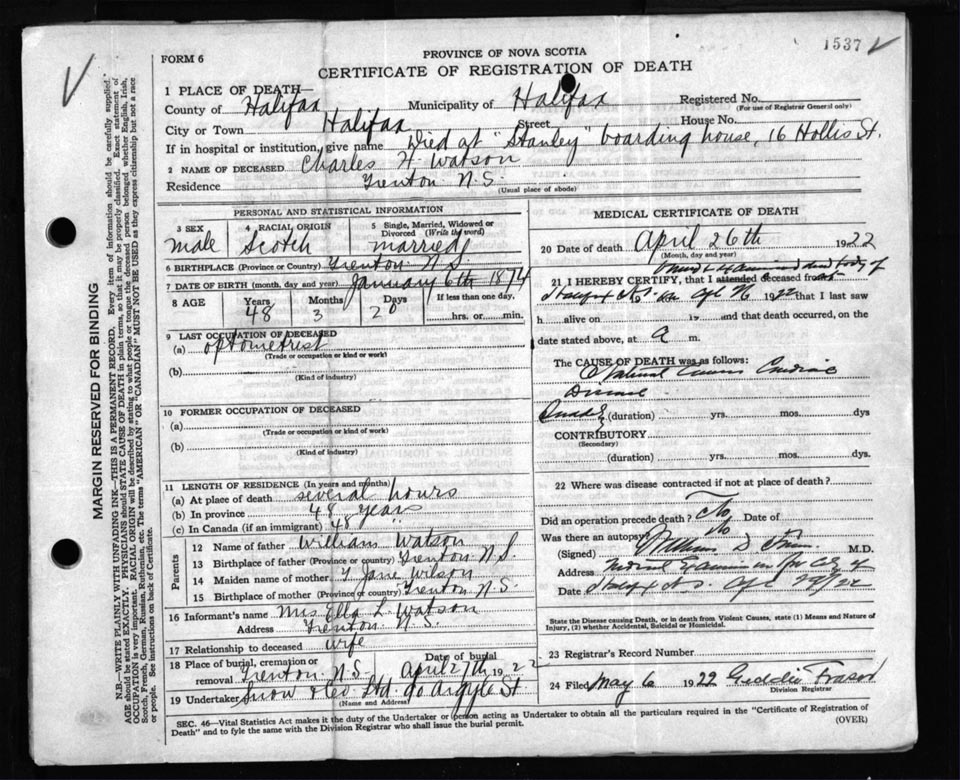 1537 ✓
FORM 6
PROVINCE OF NOVA SCOTIA
CERTIFICATE OF REGISTRATION OF DEATH
1 PLACE OF DEATH—
County of Halifax Municipality of Halifax Registered No.
(For use of Registrar General only)
City or Town Halifax Street House No.
If in hospital or institution, give name Died at "Stanley" boarding house, 16 Hollis St.
2 NAME OF DECEASED Charles H Watson
Residence Trenton N.S.
(Usual place of abode)
PERSONAL AND STATISTICAL INFORMATION
3 SEX 4 RACIAL ORIGIN 5 Single, Married, Widowed or Divorced (Write the word)
male Scotch married
6 BIRTHPLACE (Province or Country) Trenton N.S.
7 DATE OF BIRTH (month, day and year) January 6th 1874
8 AGE Years Months Days If less than one day,
48 3 20 hrs. or min.
9 LAST OCCUPATION OF DECEASED
(a) optometrist
(Trade or occupation or kind or work)
(b)
(Kind of industry)
10 FORMER OCCUPATION OF DECEASED
(a)
(Trade or occupation or kind or work)
(b)
(Kind of industry)
11 LENGTH OF RESIDENCE (In years and months)
(a) At place of death several hours
(b) In province 48 years
(c) In Canada (if an immigrant) 48
Parents
12 Name of father William Watson
13 Birthplace of father (Province or Country) Trenton N.S.
14 Maiden name of mother Jane Wilson
15 Birthplace of mother (Province or country) Trenton N.S.
16 Informant's name Mrs Ella L Watson
Address Trenton N.S.
17 Relationship to deceased wife
18 Place of burial, cremation or removal Trenton N.S. Date of burial April 27th 1922
19 Undertaker Snow & Co Ltd. Argyle St
(Name and Address)
MEDICAL CERTIFICATE OF DEATH
20 Date of death April 26th 1922
(Month, day and year)
21 I HEREBY CERTIFY, that I attended deceased from
1922 that I last saw
h alive on 19 and that death occurred, on
date stated above, at a m.
The CAUSE OF DEATH was as follows:
Natural Causes Cardiac
Disease
(duration) yrs. mos. dys
CONTRIBUTORY
(Secondary)
(duration) yrs. mos. dys.
22 Where was disease contracted if not at place of death?
Did an operation precede death? No Date of
Was there an autopsy No
(Signed) William D M.D.
Address Medical Examiner for City of
Date Halifax N.S. 22
State the Disease causing Death, or in death from Violent Causes, state (1) Means and Nature of Injury, (2) whether Accidental, Suicidal or Homicidal.
23 Registrar's Record Number
24 Filed May 6 1922 Geddie Fraser
Division Registrar
SEC. 46—Vital Statistics Act makes it the duty of the Undertaker or person acting as Undertaker to obtain all the particulars required in the "Certificate of Registration of
Death" and to fyle the same with the Division Registrar who shall issue the burial permit. (OVER)
MARGIN RESERVED FOR BINDING
N.B.—WRITE PLAINLY WITH UNFADING INK—THIS IS A PERMANENT RECORD. Every item of information should be carefully supplied.
AGE should be stated EXACTLY. PHYSICIANS should STATE CAUSE OF DEATH in plain terms, so that it may be properly classified. Exact statement of
OCCUPATION is very important. RACIAL ORIGIN will be described by stating to what people or tongue the deceased person belonged whether English, Irish,
Scotch, French, German, Russian, Ruthenian, etc. The terms "AMERICAN" OR "CANADIAN" MUST NOT BE USED as they express citizenship but not a race
or people. See instructions on back of Certificate.